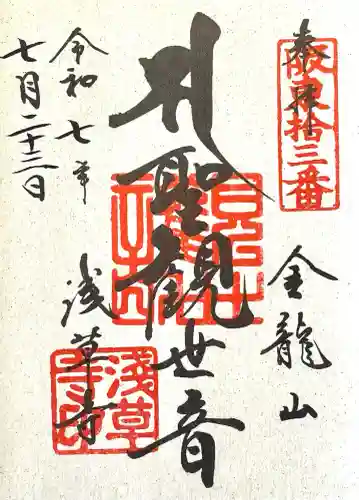 奉拝
阪東拾三番
金龍山
聖観世音
浅草寺
淺草
令和七年
七月二十三日